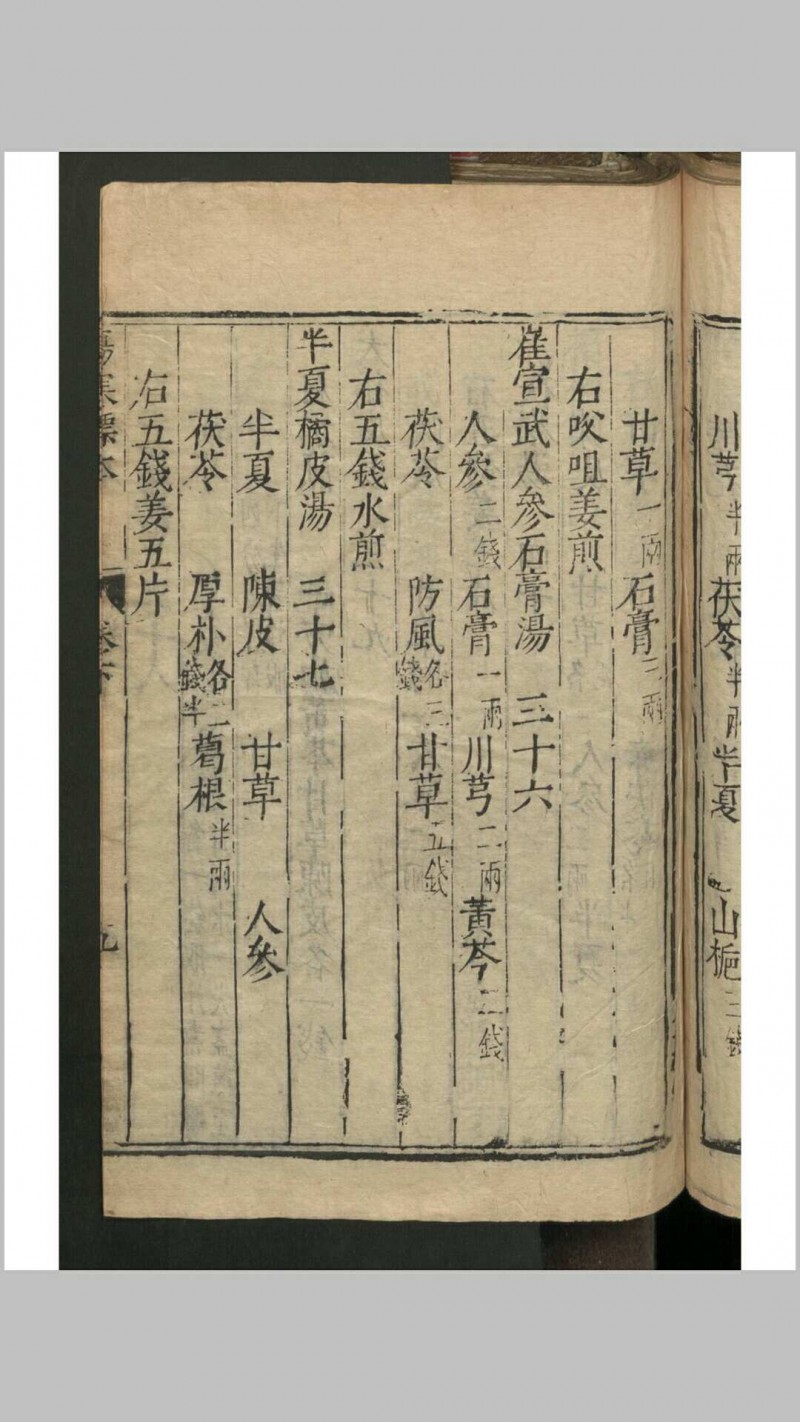 川芎半兩茯苓半兩半夏 山梔三錢
甘草一兩 石膏三兩
右㕮咀姜煎
崔宣武人參石膏湯 三十六
人參二錢 石膏一兩 川芎二兩 黃芩二錢
茯苓 防風各三錢 甘草五錢
右五錢水煎
半夏橘皮湯 三十七
半夏 陳皮 甘草 人參
茯苓 厚朴各二錢半 葛根半兩
右五錢姜五片
傷寒標本 卷下 九